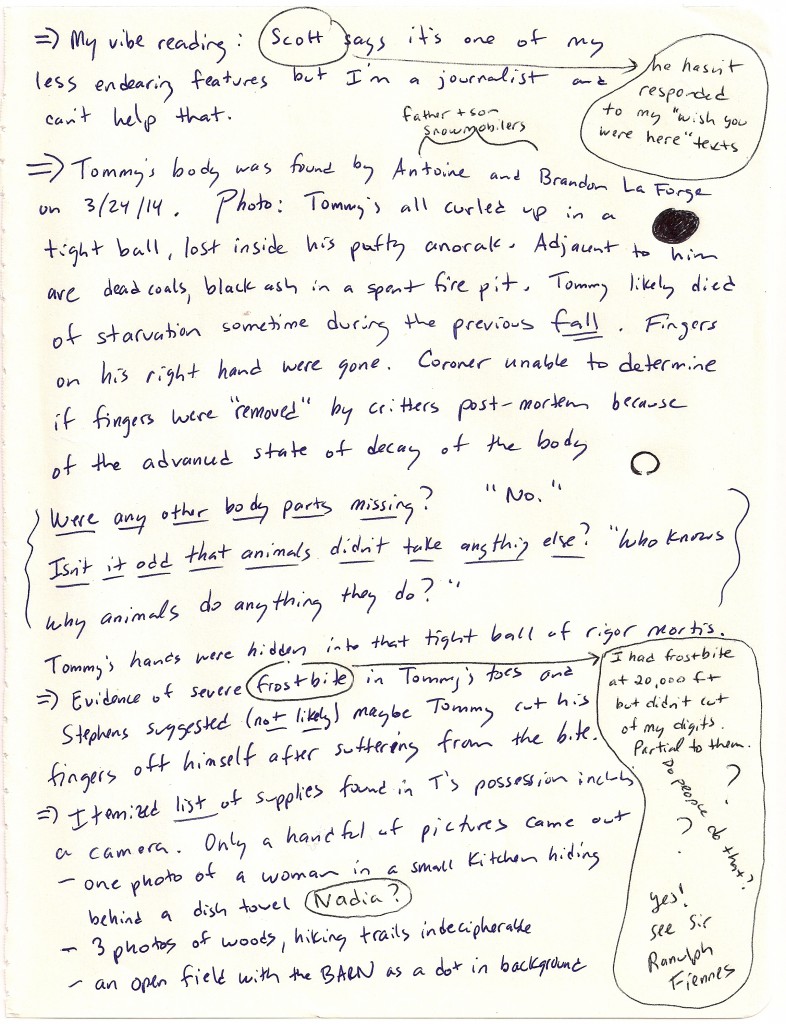 => My vibe reading: Scott says it's one of my
less endearing features but I'm a journalist and
can't help that.
he hasn't
responded
to my "wish you
were here" texts
father + son
snowmobilers
=> Tommy's body was found by Antoine and Brandon La Forge
on 3/24/14. Photo: Tommy's all curled up in a
tight ball, lost inside his puffy anorak. Adjacent to him
are dead coals, black ash in a spent fire pit. Tommy likely died
of starvation sometime during the previous fall. Fingers
on his right hand were gone. Coroner unable to determine
if fingers were "removed" by critters post-mortem because
of the advanced state of decay of the body
Were any other body parts missing? "No."
Isn't it odd that animals didn't take anything else? "Who knows
why animals do anything they do?"
Tommy's hands were hidden into that tight ball of rigor mortis.
=> Evidence of severe frostbite in Tommy's toes and
Stephens suggested (not likely) maybe Tommy cut his
fingers off himself after suffering from the bite.
I had frostbite
at 20,000 ft
but didn't cut
of my digits.
Partial to them.
Do people do that?
? ?
yes!
see Sir
Ranulph
Fiennes
=> Itemized list of supplies found in T's possession includes
a camera. Only a handful of pictures came out
- one photo of a woman in a small kitchen hiding
behind a dish towel Nadia?
- 3 photos of woods, hiking trails indecipherable
- an open field with the BARN as a dot in background